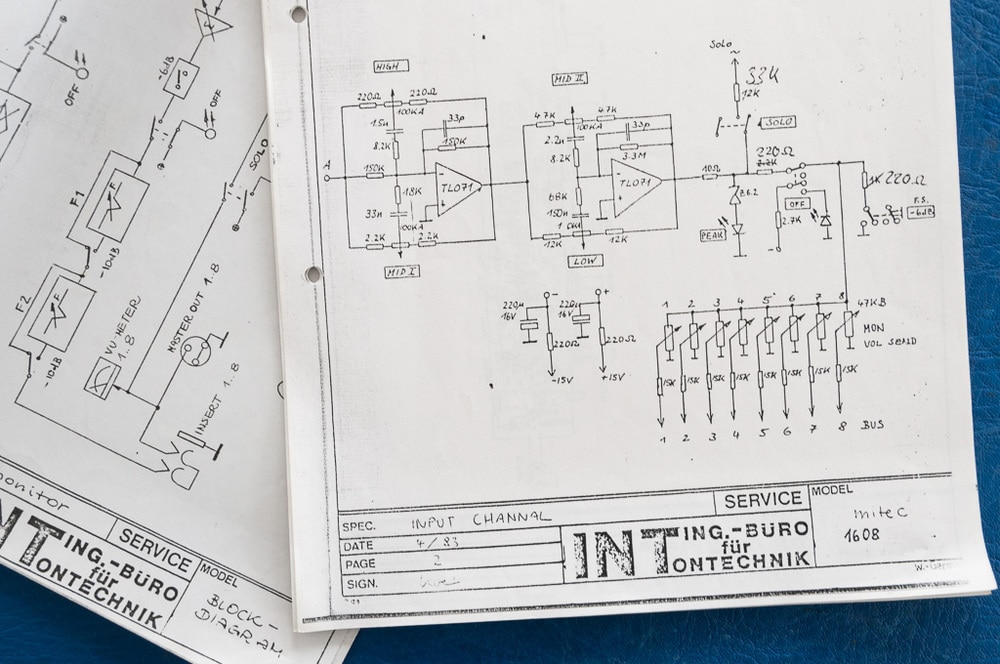 -6dB
OFF
OFF
SOLO
F1
-10dB
F2
-10dB
VU METER
1..8
MASTER OUT 1..8
INSERT 1..8
onitor
SERVICE
MODEL
INT ING.-BÜRO
für
ONTECHNIK
BLOCK-
DIAGRAM
HIGH
220Ω
220Ω
100KA
1.5n
33p
8.2K
150K
A
150K
TL071
18K
33n
100KA
2.2K
2.2K
MID I
MID II
4.7K
4.7K
100KA
2.2n
33p
8.2K
3.3M
TL071
68K
150n
12K
12K
LOW
Solo
33K
12K
SOLO
10Ω
220Ω
2.2K
Z6.2
PEAK
OFF
2.7K
1K 220Ω
F.S.
-6dB
-
+
220µ
16V
220µ
16V
220Ω
220Ω
-15V
+15V
1 2 3 4 5 6 7 8
47KB
MON
VOL SEND
15K 15K 15K 15K 15K 15K 15K 15K
1 2 3 4 5 6 7 8 BUS
SERVICE
MODEL
SPEC. INPUT CHANNAL
DATE 4/83
PAGE 2
SIGN.
INT ING.-BÜRO
für
ONTECHNIK
mitec
1608